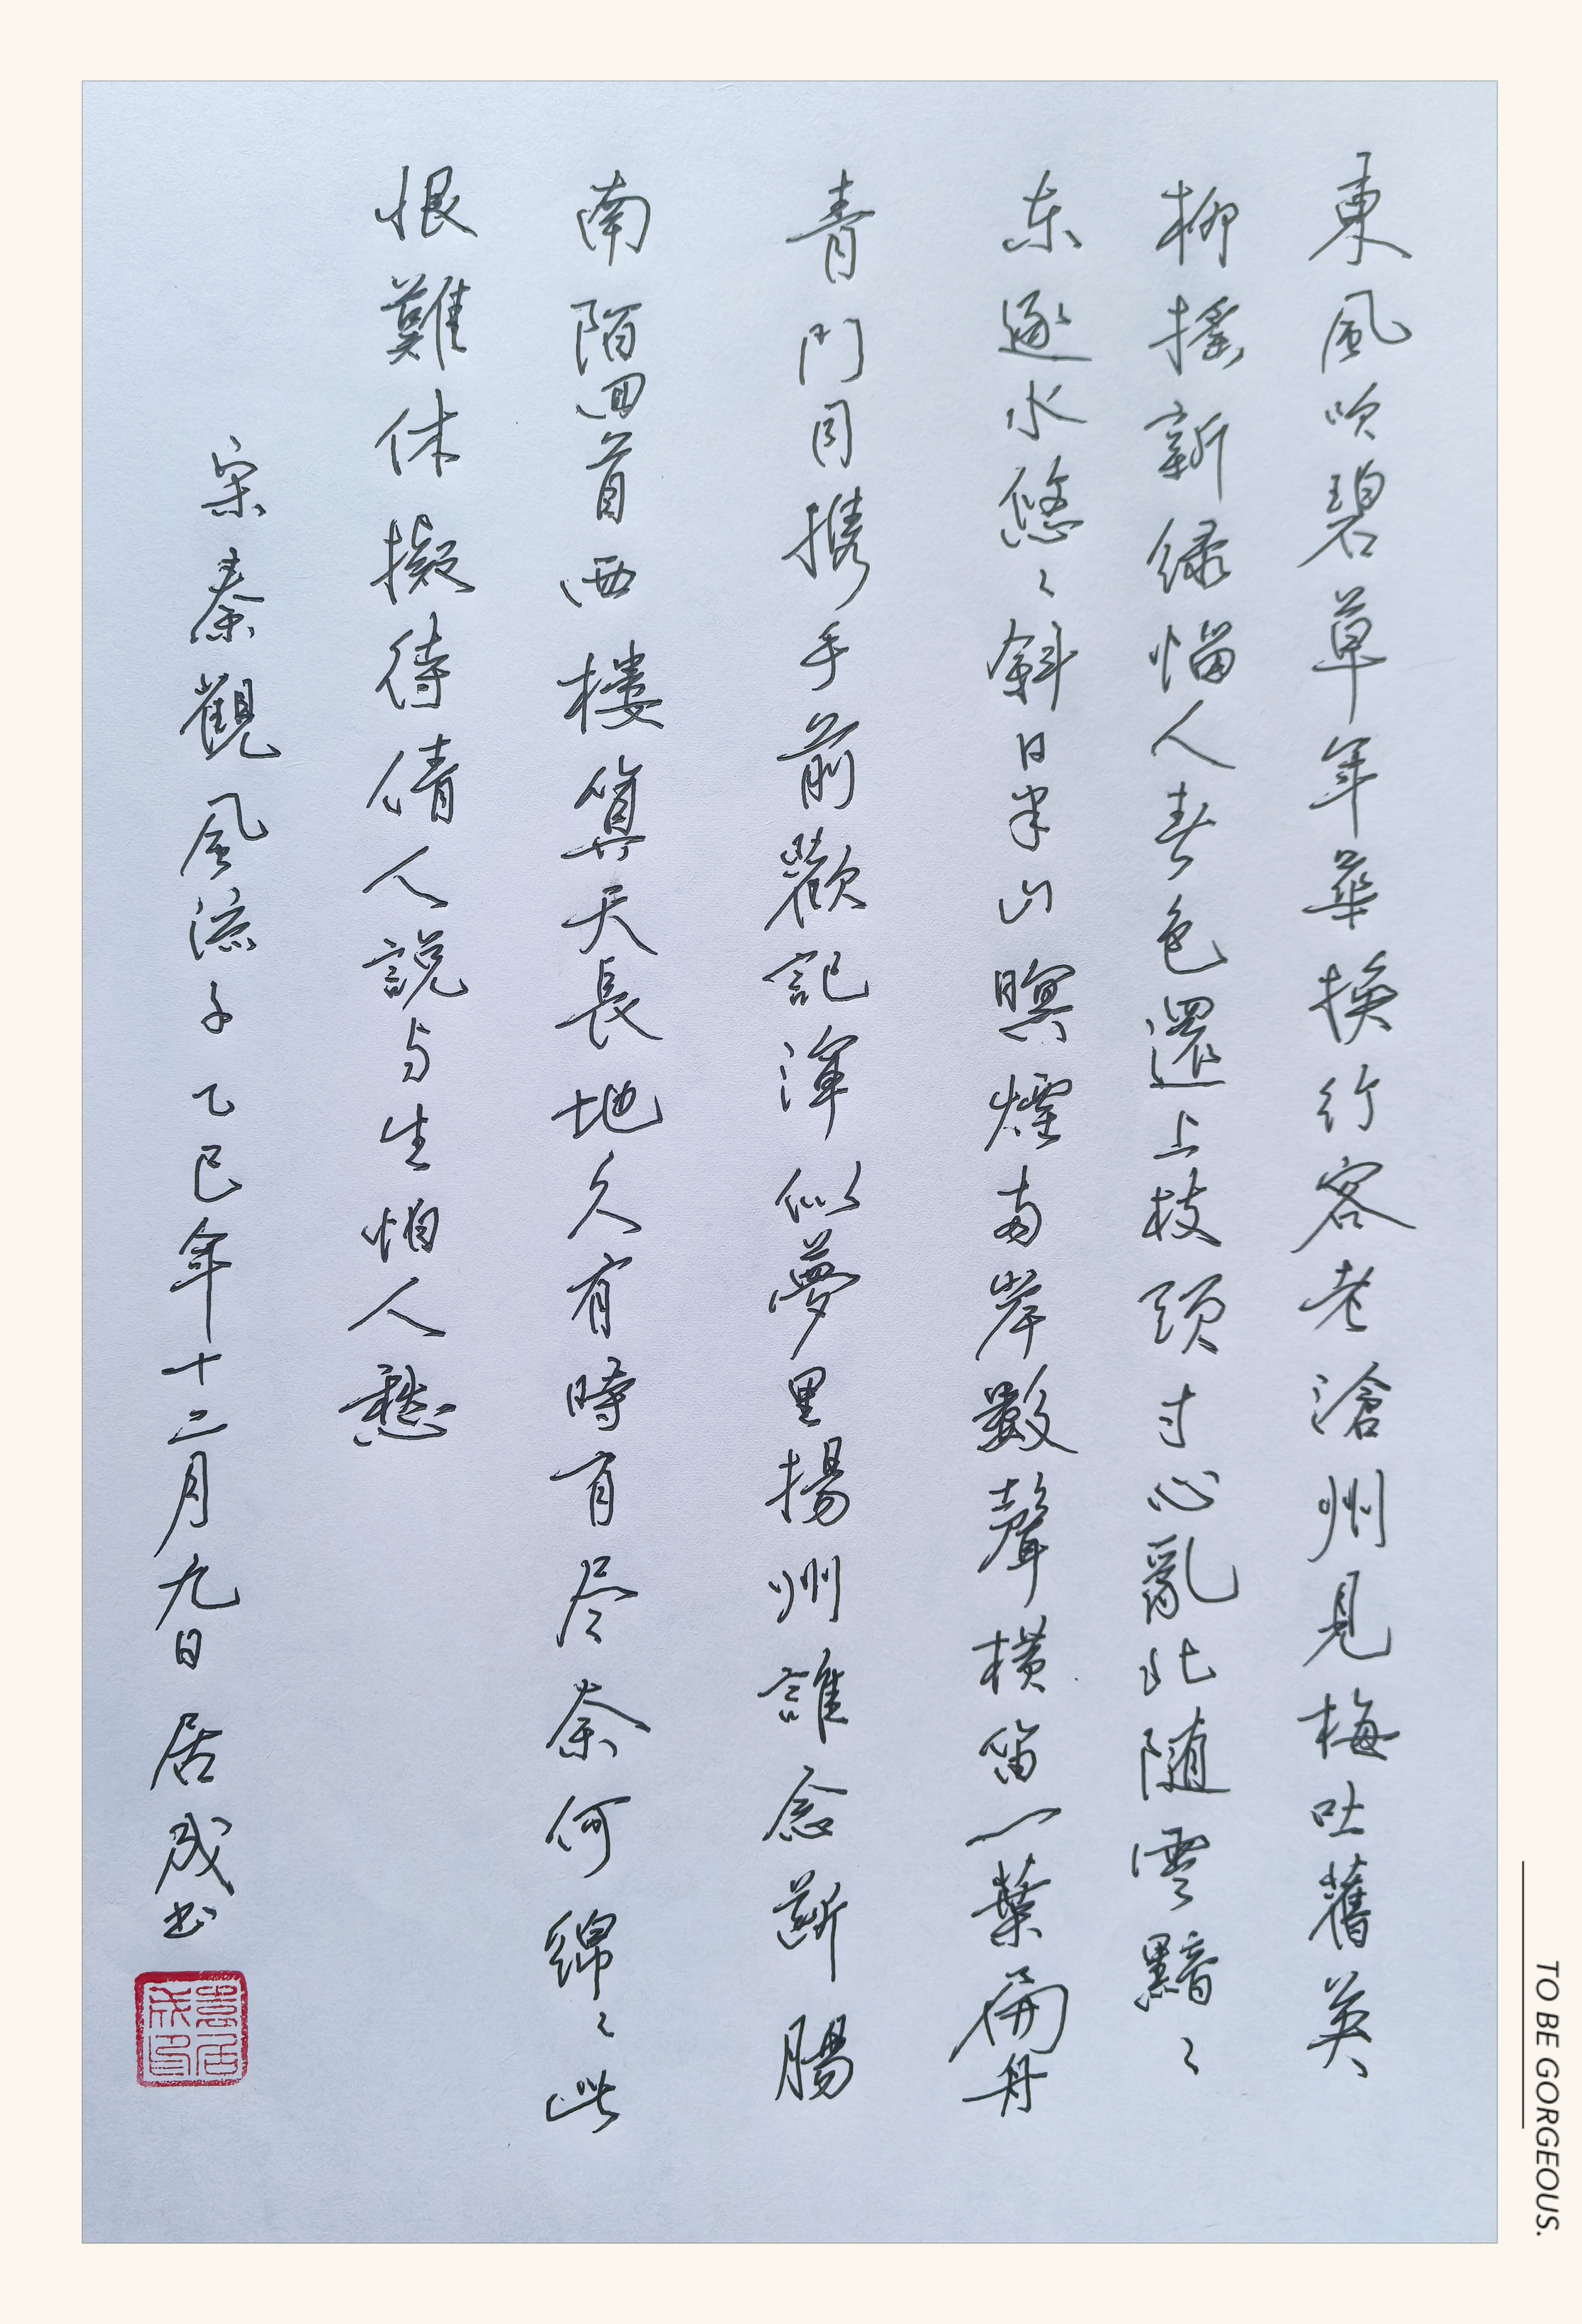 東風吹碧草年華換行客老滄州見梅吐舊英
柳搖新緑惱人春色還上枝頭寸心亂北随雲黯〻
东逐水悠〻斜日半山暝煙兩岸數聲横笛一葉扁舟
青門同携手前歡記渾似夢里揚州誰念斷腸
南陌回首西樓算天長地久有時有尽奈何綿〻此
恨難休擬待倩人説与生怕人愁
宋秦觀風流子 乙巳年十二月九日 居成书
TO BE GORGEOUS.